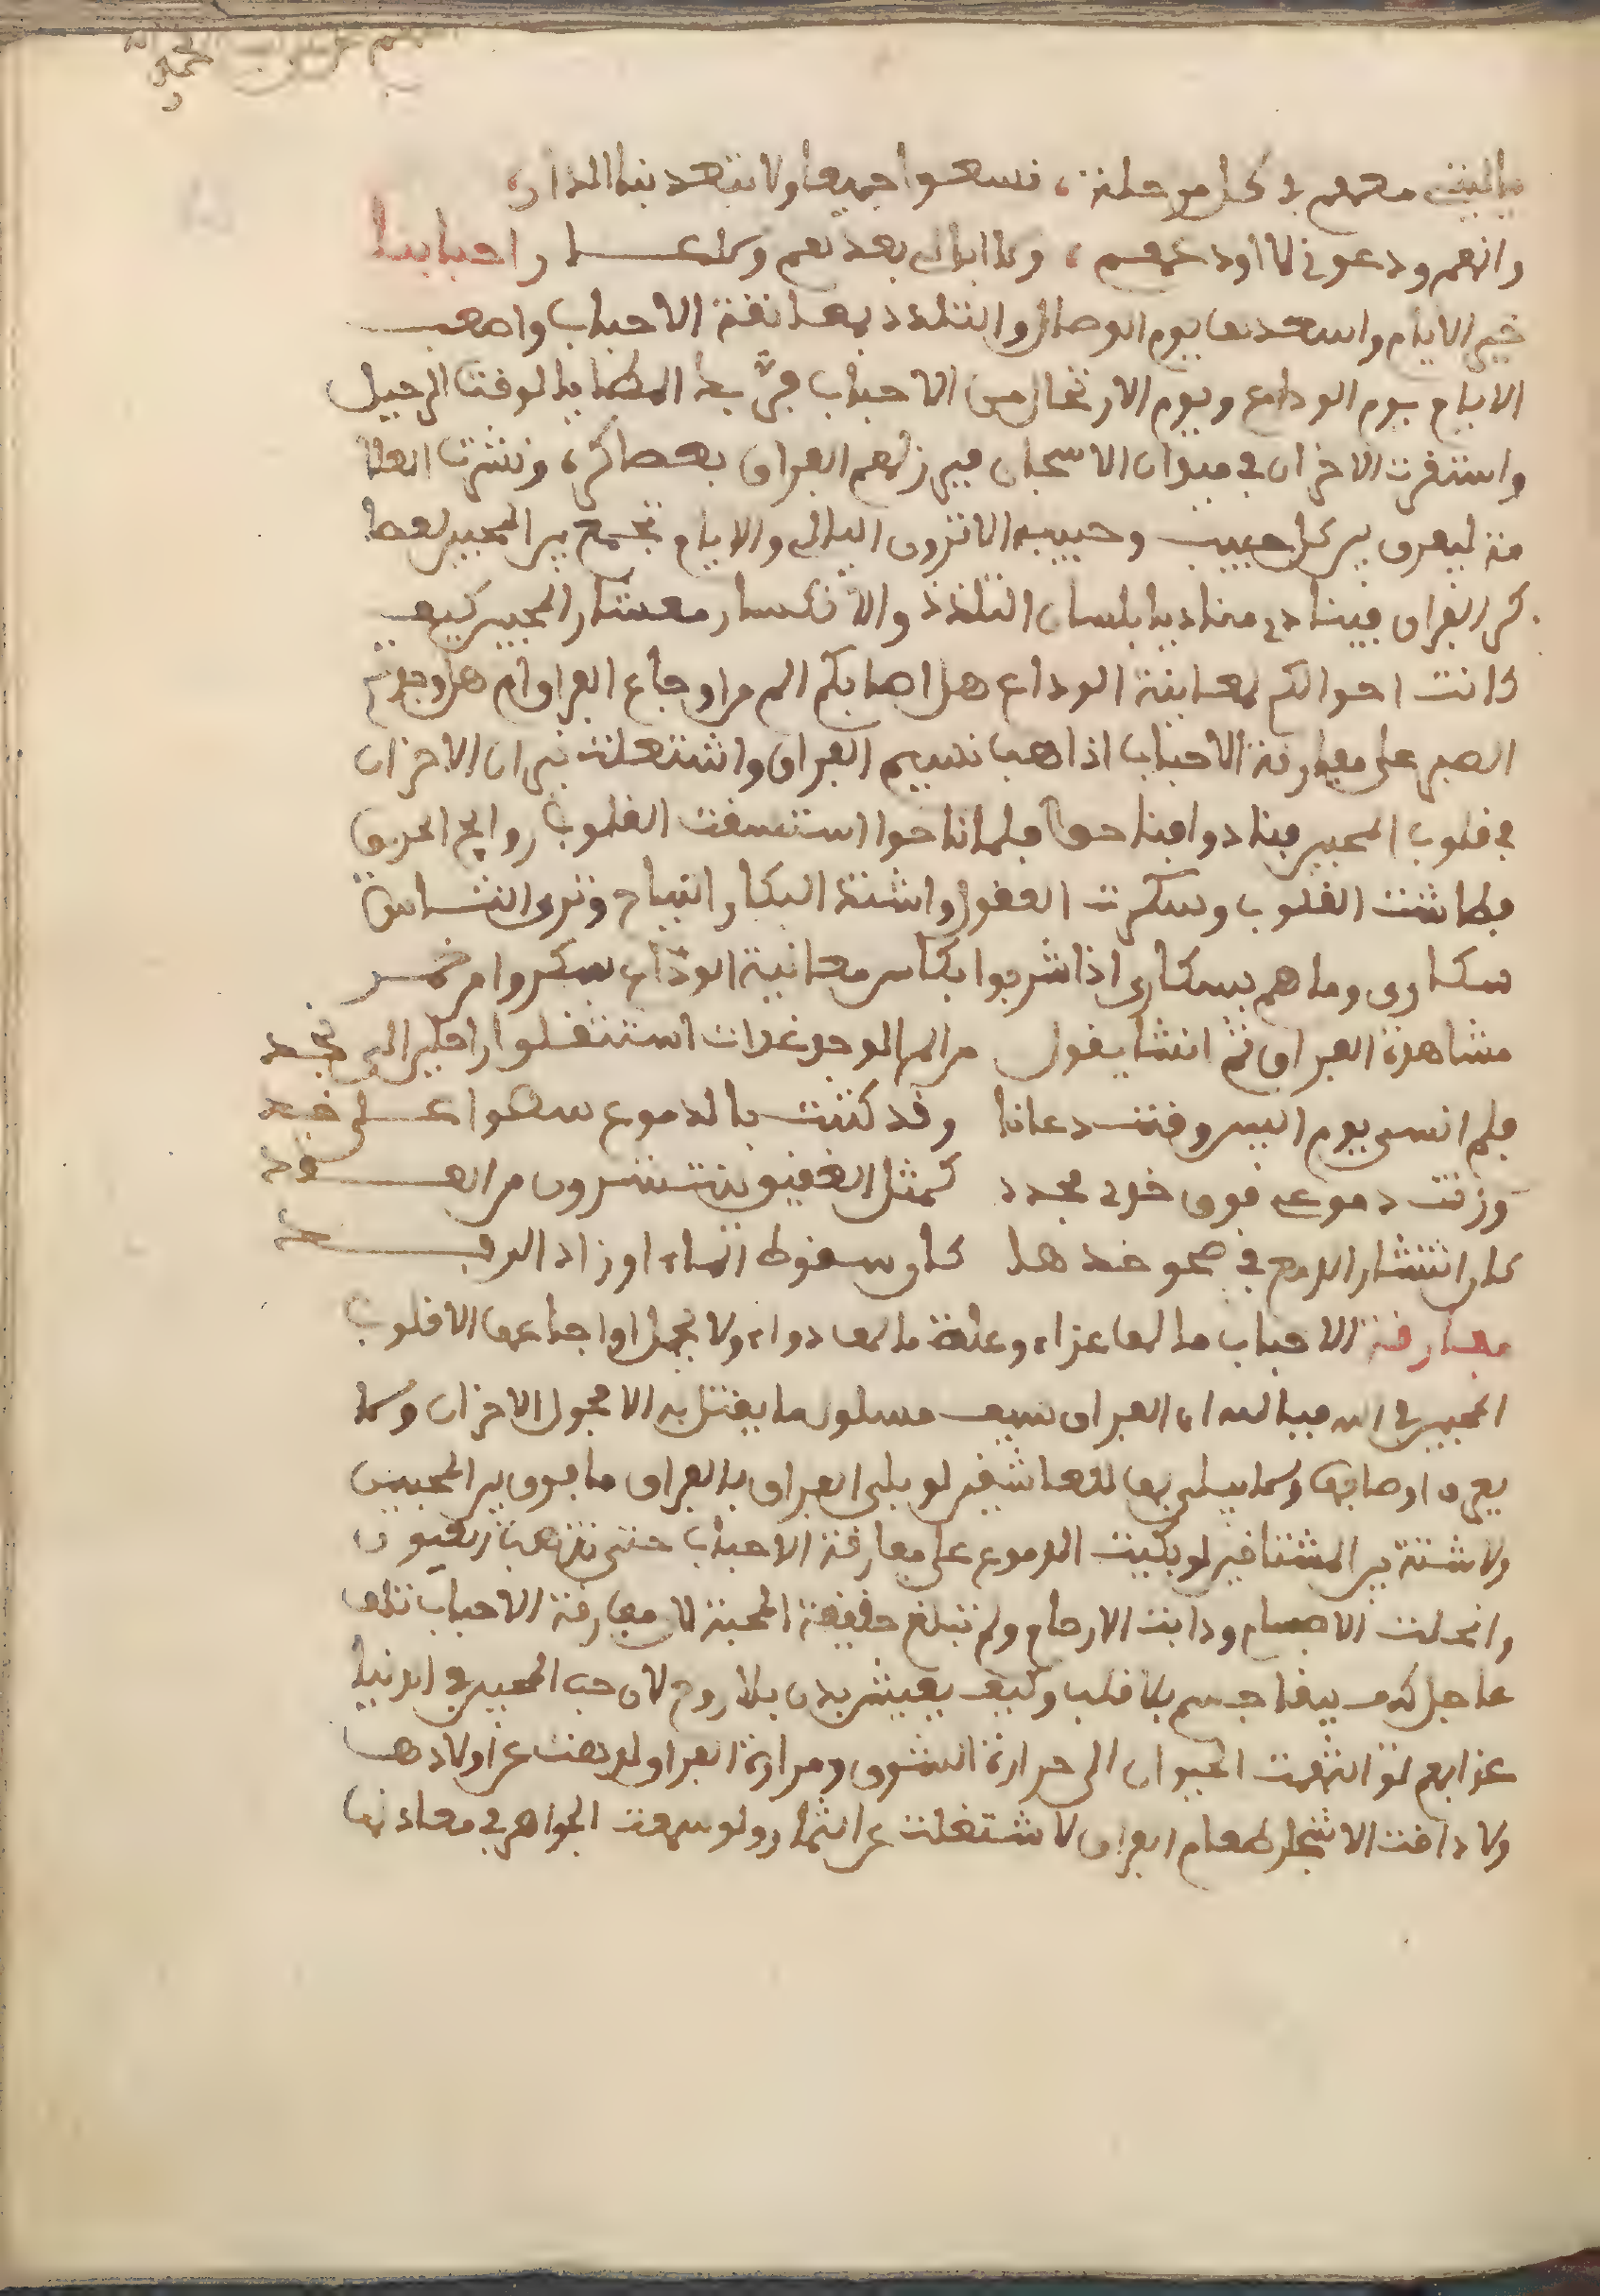 ياليت معهم في كل مرحلة، نسعوا جميعا ولا تبعد بنا الدار،
وانهم ودعوني لا اودعهم، ولا ابالي بعدهم وكلا احبابنا
خير الايام واسعدها يوم الوصال والتلذذ بمعانقة الاحباب واصعب
الايام يوم الوداع ويوم الارتحال من الاحباب المطايا لوقت الرحيل
واستقرت الاحزان في ميدان الاشجان فبرز لهم الفراق بعساكره ونشرت العلا
مة ليفرق بين كل حبيب وحبيبه الا ترون الليالي والايام تجمع بين المحبين لعسا
كر الفراق فينادي مناديا بلسان التلذذ والانكسار معشار المحبين كيف
كانت احوالكم لمعاينة الوداع هل اصابكم الم من اوجاع الفراق ام هل وجدتم
الصبر على مفارقة الاحباب اذا هب نسيم الفراق واشتعلت نيران الاحزان
في قلوب المحبين فنادوا فلما ناحوا استنشقت القلوب روايح الحريق
فطاشت القلوب وسكرت العقول واشتد البكا والنياح وترى الناس
سكارى وما هم بسكارى اذا شربوا بكاس معانية الوداع سكروا من خمر
مشاهدة الفراق ثم انشا يقول من الم الوجد غدات استنقلوا راحلين الى نجد
فلم انسى يوم البين وقت دعانا وقد كتبت بالدموع سطوا على خد
وزنت دموعي فوق خدي مجدد كمثل العقيق تنشرون من العقد
كان انتشار الدمع في صحو خدها كاوسقوط الماء اوزاد الورد
مفارقة الاحباب ما لها عزاء وعلة ما لها دواء ولا تحمل اواجاعها الا قلوب
المحبين في الله فيالله ان الفراق سيف مسلول ما يقتل به الا فحول الاحزان ولا
يعرف اوصافها ولا يبلى بها الا العاشقين لو بلى الفراق بالفراق ما فرق بين المحبين
ولا شتت بين المشتاقين لو بكيت الدموع على مفارقة الاحباب حتى تذهب العيون
وانحلت الاجسام وذابت الارحام ولم تبلغ حقيقة المحبة لا مفارقة الاحباب تلف
عاجل كيف يبقا جسم بلا قلب وكيف يعيش بدن بلا روح لان حب المحبين في الدنيا
عذابهم لو انتهت الحيوان الى حرارة الشوق ومرارة الفراق لذهلت عن اولادها
ولا ذاقت الاشجار طعام الفراق لاشتغلت عن اثمار ولو سمعت الجواهر في معادنها